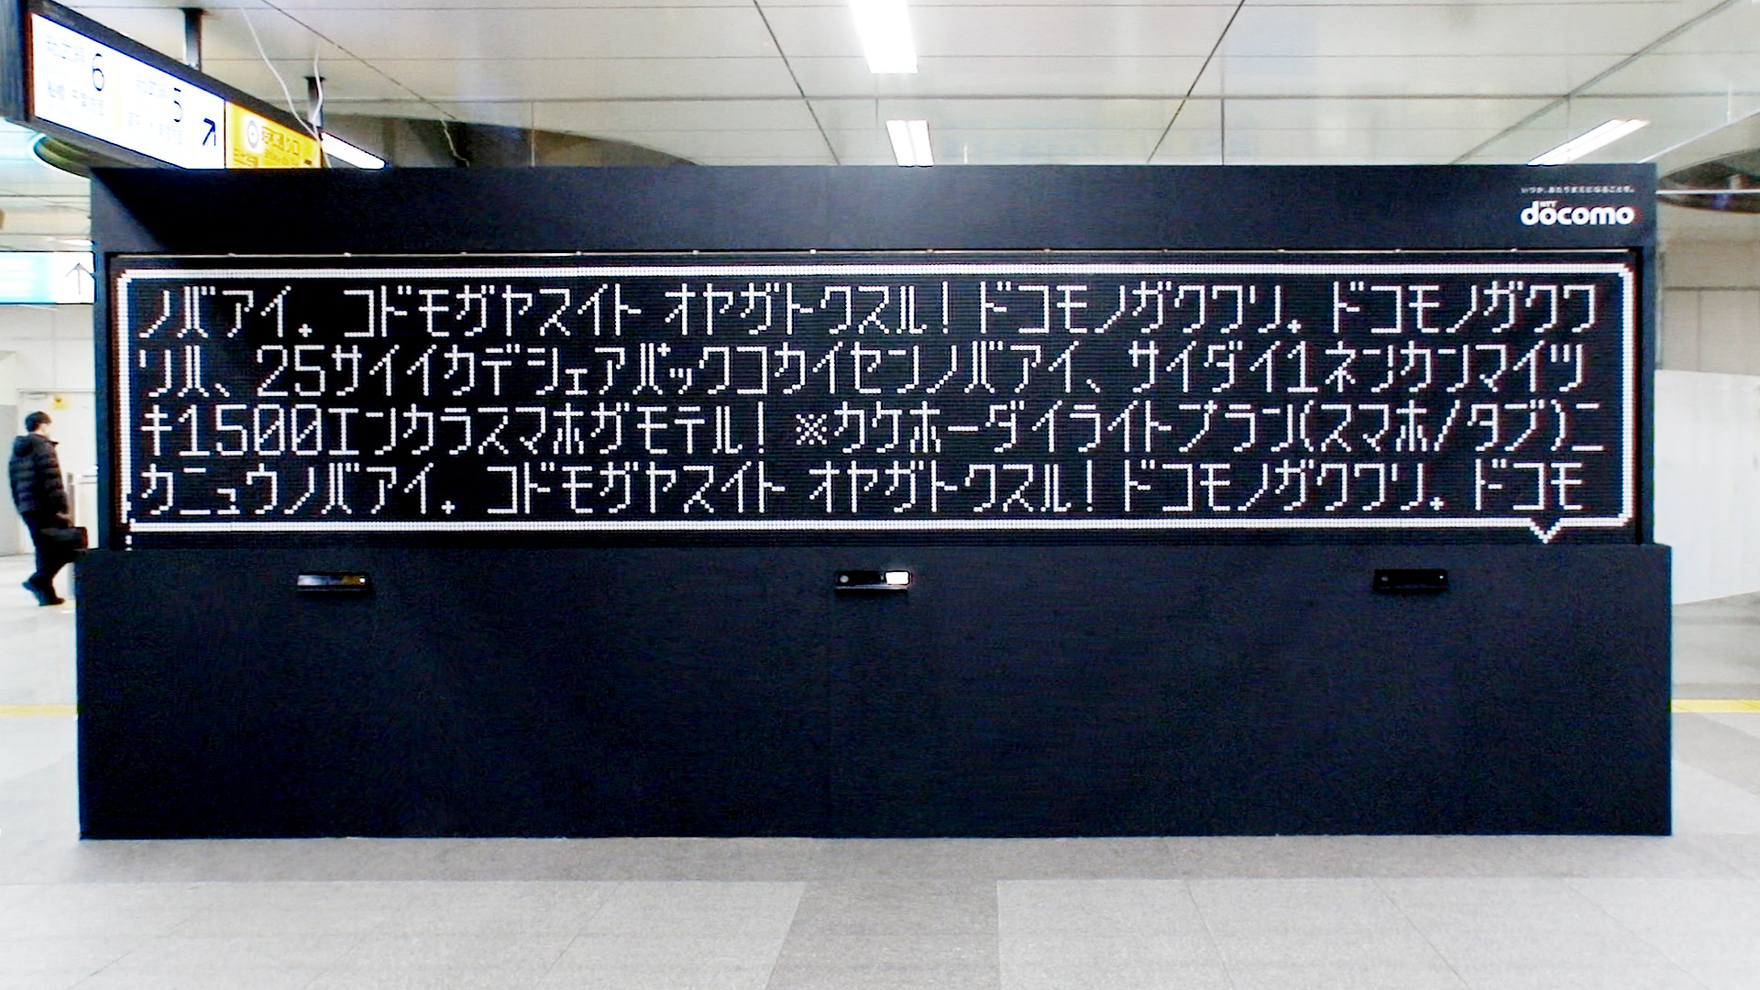 6
5
いつか、あたりまえになることを。
NTT
docomo
ノバアイ。コドモガヤスイト オヤガトクスル!ドコモノガクワリ。ドコモノガクワ
リハ、25サイイカデシェアパックコカイセンノバアイ、サイダイ1ネンカンマイツ
キ1500エンカラスマホガモテル!※カケホーダイライトプラン(スマホ/タブ)ニ
カニュウノバアイ。コドモガヤスイト オヤガトクスル!ドコモノガクワリ。ドコモ